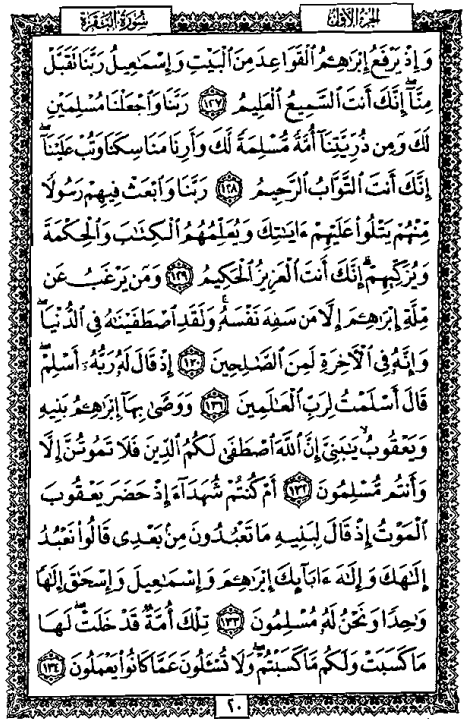 سُورَةُ البَقَرَةِ الجُزءُ الأوّلُ
وَإِذْ يَرْفَعُ إِبْرَٰهِـۧمُ ٱلْقَوَاعِدَ مِنَ ٱلْبَيْتِ وَإِسْمَـٰعِيلُ رَبَّنَا تَقَبَّلْ
مِنَّآ ۖ إِنَّكَ أَنتَ ٱلسَّمِيعُ ٱلْعَلِيمُ ١٢٧ رَبَّنَا وَٱجْعَلْنَا مُسْلِمَيْنِ
لَكَ وَمِن ذُرِّيَّتِنَآ أُمَّةً مُّسْلِمَةً لَّكَ وَأَرِنَا مَنَاسِكَنَا وَتُبْ عَلَيْنَآ ۖ
إِنَّكَ أَنتَ ٱلتَّوَّابُ ٱلرَّحِيمُ ١٢٨ رَبَّنَا وَٱبْعَثْ فِيهِمْ رَسُولًا
مِّنْهُمْ يَتْلُوا۟ عَلَيْهِمْ ءَايَـٰتِكَ وَيُعَلِّمُهُمُ ٱلْكِتَـٰبَ وَٱلْحِكْمَةَ
وَيُزَكِّيهِمْ ۚ إِنَّكَ أَنتَ ٱلْعَزِيزُ ٱلْحَكِيمُ ١٢٩ وَمَن يَرْغَبُ عَن
مِّلَّةِ إِبْرَٰهِـۧمَ إِلَّا مَن سَفِهَ نَفْسَهُۥ ۚ وَلَقَدِ ٱصْطَفَيْنَـٰهُ فِى ٱلدُّنْيَا ۖ
وَإِنَّهُۥ فِى ٱلْـَٔاخِرَةِ لَمِنَ ٱلصَّـٰلِحِينَ ١٣٠ إِذْ قَالَ لَهُۥ رَبُّهُۥٓ أَسْلِمْ ۖ
قَالَ أَسْلَمْتُ لِرَبِّ ٱلْعَـٰلَمِينَ ١٣١ وَوَصَّىٰ بِهَآ إِبْرَٰهِـۧمُ بَنِيهِ
وَيَعْقُوبُ يَـٰبَنِىَّ إِنَّ ٱللَّهَ ٱصْطَفَىٰ لَكُمُ ٱلدِّينَ فَلَا تَمُوتُنَّ إِلَّا
وَأَنتُم مُّسْلِمُونَ ١٣٢ أَمْ كُنتُمْ شُهَدَآءَ إِذْ حَضَرَ يَعْقُوبَ
ٱلْمَوْتُ إِذْ قَالَ لِبَنِيهِ مَا تَعْبُدُونَ مِنۢ بَعْدِى قَالُوا۟ نَعْبُدُ
إِلَـٰهَكَ وَإِلَـٰهَ ءَابَآئِكَ إِبْرَٰهِـۧمَ وَإِسْمَـٰعِيلَ وَإِسْحَـٰقَ إِلَـٰهًا
وَٰحِدًا وَنَحْنُ لَهُۥ مُسْلِمُونَ ١٣٣ تِلْكَ أُمَّةٌ قَدْ خَلَتْ ۖ لَهَا
مَا كَسَبَتْ وَلَكُم مَّا كَسَبْتُمْ ۖ وَلَا تُسْـَٔلُونَ عَمَّا كَانُوا۟ يَعْمَلُونَ ١٣٤
٢٠